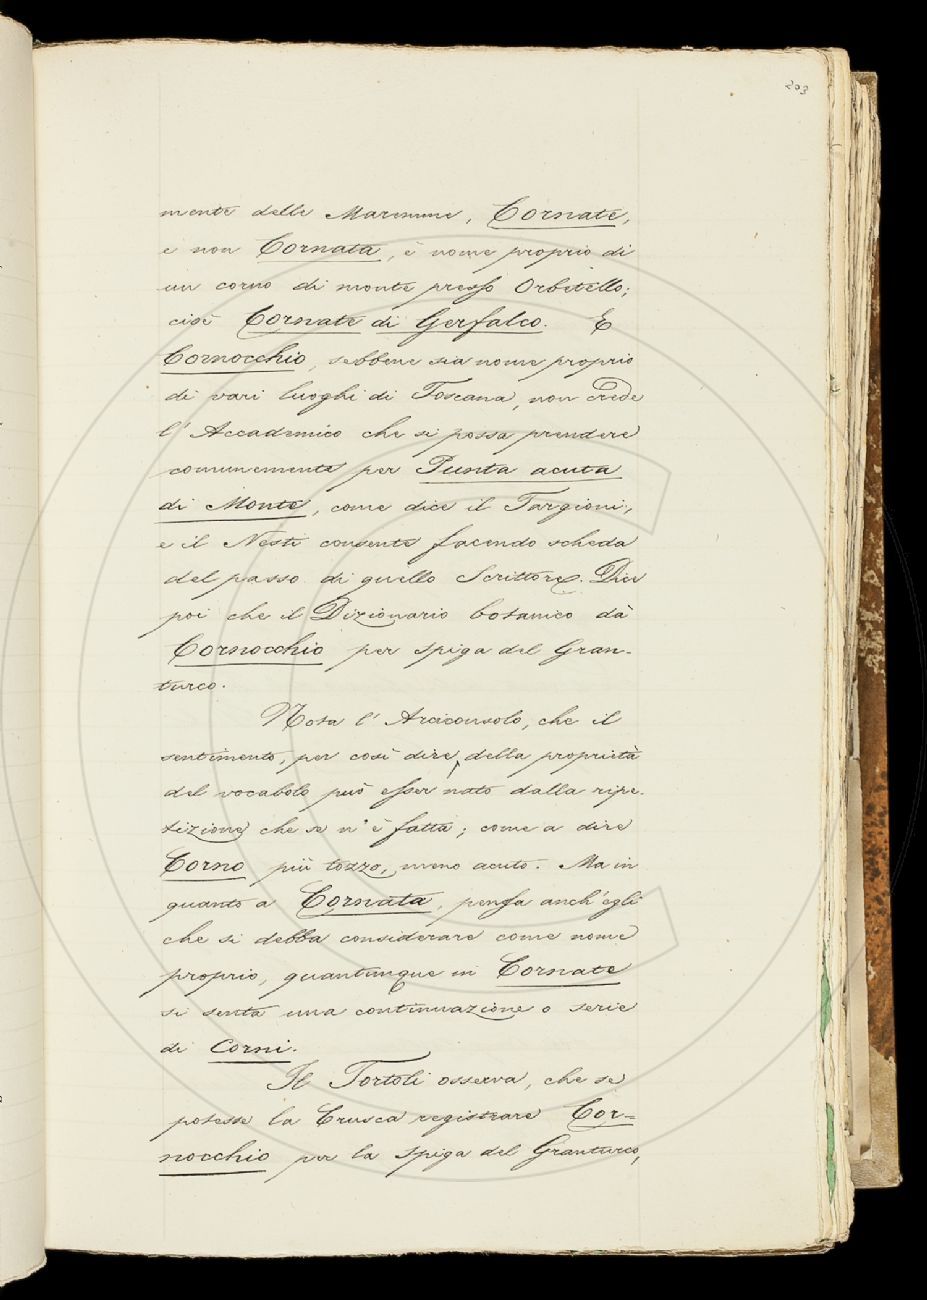 203
mente delle Maremme, Cornate,
e non Cornata, è nome proprio di
un corno di monte presso Orbetello;
cioè Cornate di Gerfalco. E
Cornocchio, sebbene sia nome proprio
di vari luoghi di Toscana, non crede
l'Accademico che si possa prendere
comunemente per Punta acuta
di Monte, come dice il Targioni,
e il Nesti consente facendo scheda
del passo di quello Scrittore. Dice
poi che il Dizionario botanico dà
Cornocchio per spiga del Gran-
turco.
Nota l'Arciconsolo, che il
sentimento, per così dire, della proprietà
del vocabolo può esser nato dalla ripe-
tizione che se n'è fatta; come a dire
Corno più tozzo, meno acuto. Ma in
quanto a Cornata, pensa anch'egli
che si debba considerare come nome
proprio, quantunque in Cornate
si senta una continuazione o serie
di Corni.
Il Tortoli osserva, che se
potesse la Crusca registrare Cor=
nocchio per la spiga del Granturco,